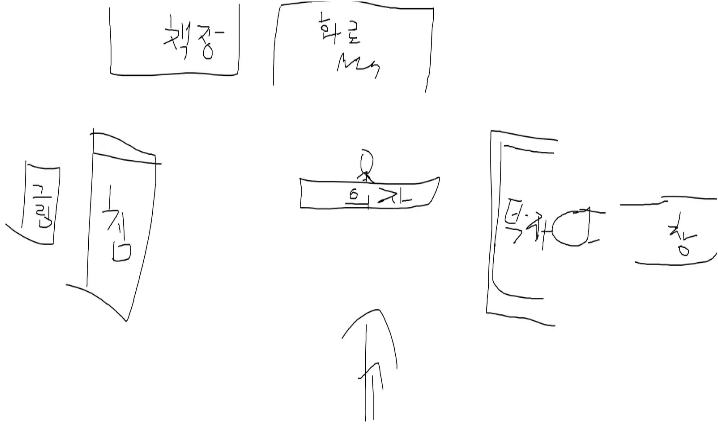 책장
화로
그림
침
의자
탁자
창